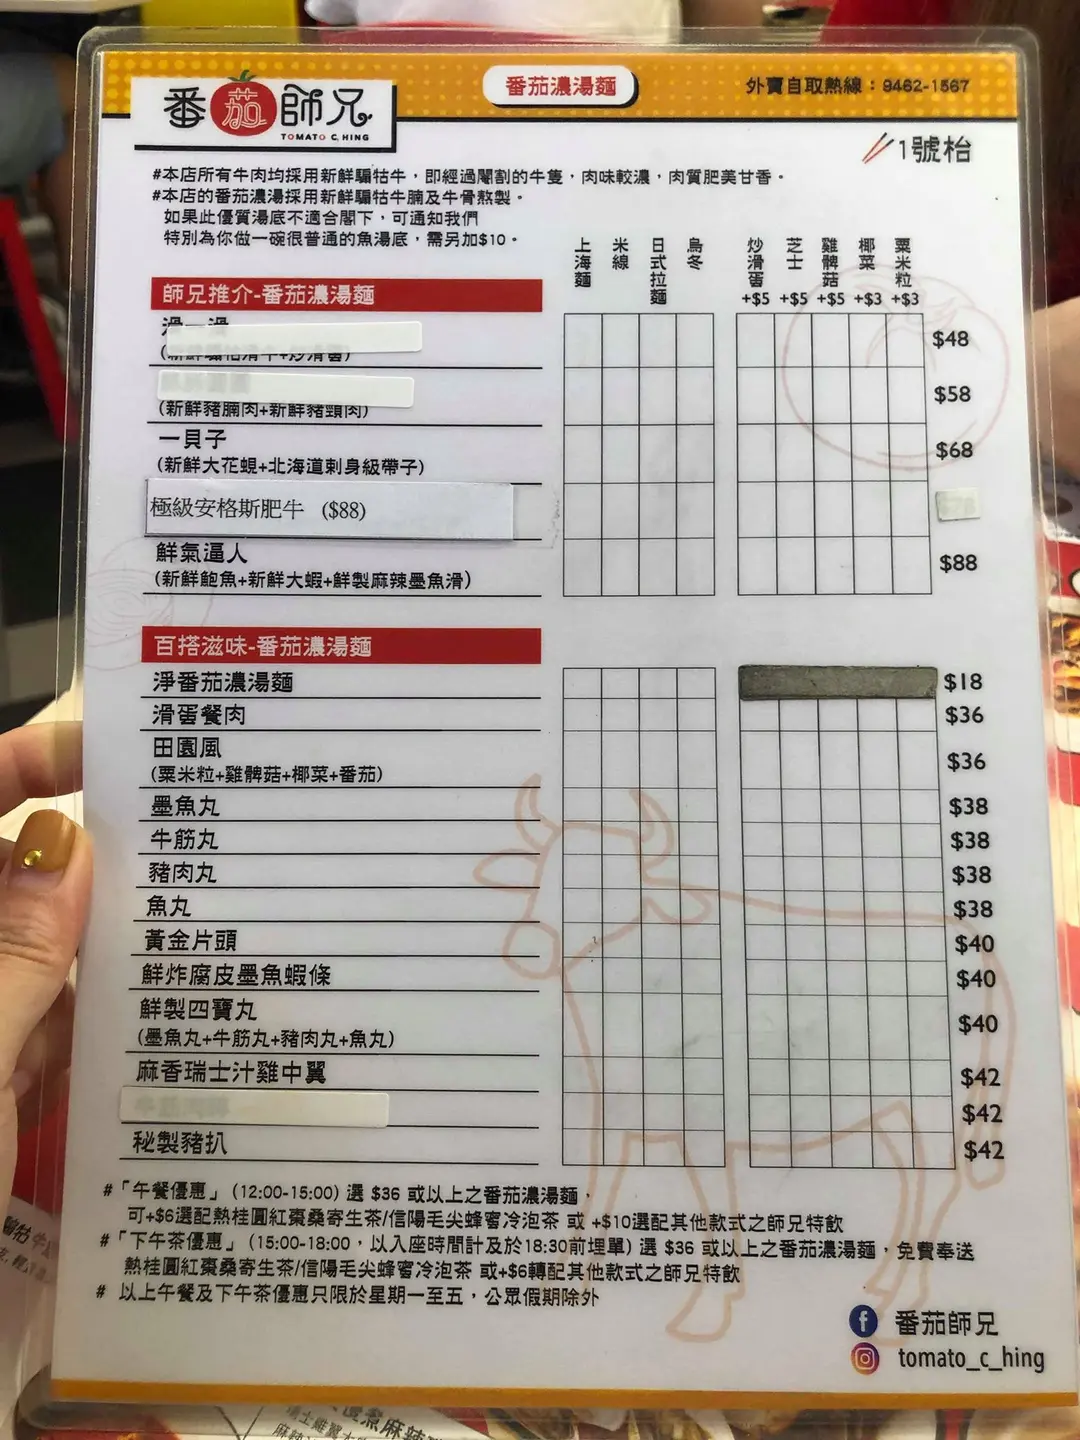 番茄師兄
TOMATO C HING
番茄濃湯麵
外賣自取熱線：9462-1567
1號枱
#本店所有牛肉均採用新鮮騸牯牛，即經過閹割的牛隻，肉味較濃，肉質肥美甘香。
#本店的番茄濃湯採用新鮮騸牯牛腩及牛骨熬製。
如果此優質湯底不適合閣下，可通知我們
特別為你做一碗很普通的魚湯底，需另加$10。
上海麵
米線
日式拉麵
烏冬
炒滑蛋 +$5
芝士 +$5
雞髀菇 +$5
椰菜 +$3
粟米粒 +$3
師兄推介-番茄濃湯麵
滑一滑 $48
(新鮮騸牯滑牛+炒滑蛋)
$58
(新鮮豬腩肉+新鮮豬頸肉)
一貝子 $68
(新鮮大花蜆+北海道刺身級帶子)
極級安格斯肥牛 ($88)
鮮氣逼人 $88
(新鮮鮑魚+新鮮大蝦+鮮製麻辣墨魚滑)
百搭滋味-番茄濃湯麵
淨番茄濃湯麵 $18
滑蛋餐肉 $36
田園風 $36
(粟米粒+雞髀菇+椰菜+番茄)
墨魚丸 $38
牛筋丸 $38
豬肉丸 $38
魚丸 $38
黃金片頭 $40
鮮炸腐皮墨魚蝦條 $40
鮮製四寶丸 $40
(墨魚丸+牛筋丸+豬肉丸+魚丸)
麻香瑞士汁雞中翼 $42
$42
秘製豬扒 $42
#「午餐優惠」(12:00-15:00) 選 $36 或以上之番茄濃湯麵，
可+$6選配熱桂圓紅棗桑寄生茶/信陽毛尖蜂蜜冷泡茶 或 +$10選配其他款式之師兄特飲
#「下午茶優惠」(15:00-18:00，以入座時間計及於18:30前埋單) 選 $36 或以上之番茄濃湯麵，免費奉送
熱桂圓紅棗桑寄生茶/信陽毛尖蜂蜜冷泡茶 或+$6轉配其他款式之師兄特飲
# 以上午餐及下午茶優惠只限於星期一至五，公眾假期除外
番茄師兄
tomato_c_hing